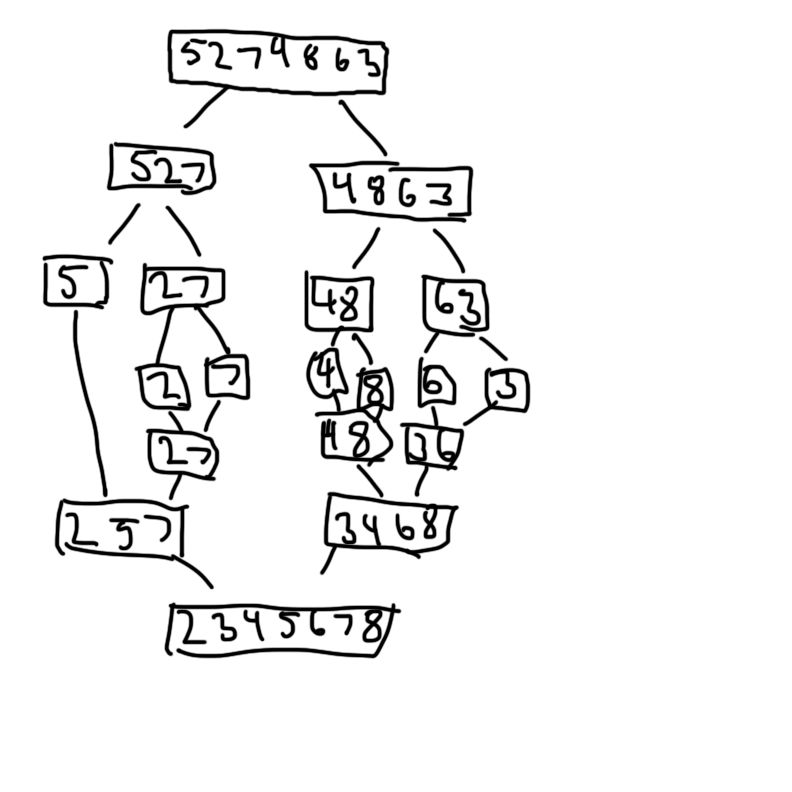 5274863
527
4863
5
27
48
63
2
7
4
8
6
3
27
48
36
257
3468
2345678